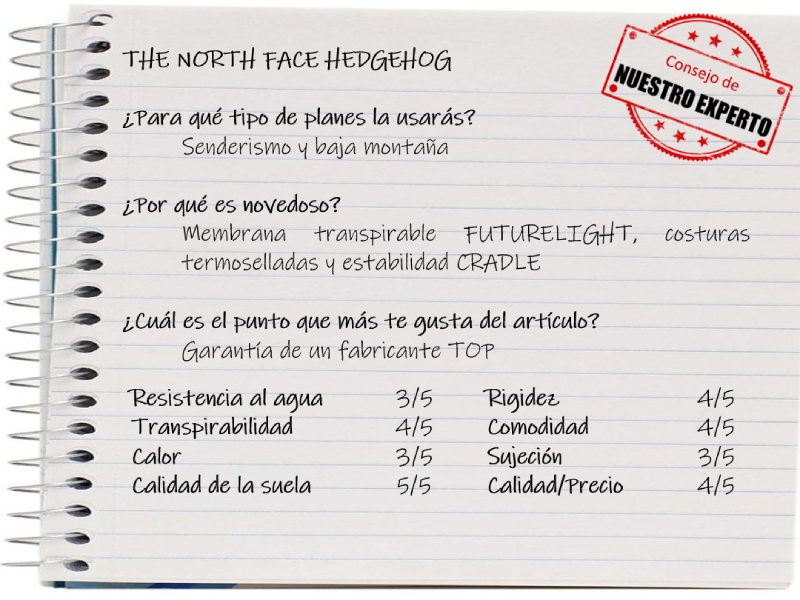 THE NORTH FACE HEDGEHOG
Consejo de
NUESTRO EXPERTO
¿Para qué tipo de planes la usarás?
Senderismo y baja montaña
¿Por qué es novedoso?
Membrana transpirable FUTURELIGHT, costuras
termoselladas y estabilidad CRADLE
¿Cuál es el punto que más te gusta del artículo?
Garantía de un fabricante TOP
Resistencia al agua 3/5 Rigidez 4/5
Transpirabilidad 4/5 Comodidad 4/5
Calor 3/5 Sujeción 3/5
Calidad de la suela 5/5 Calidad/Precio 4/5